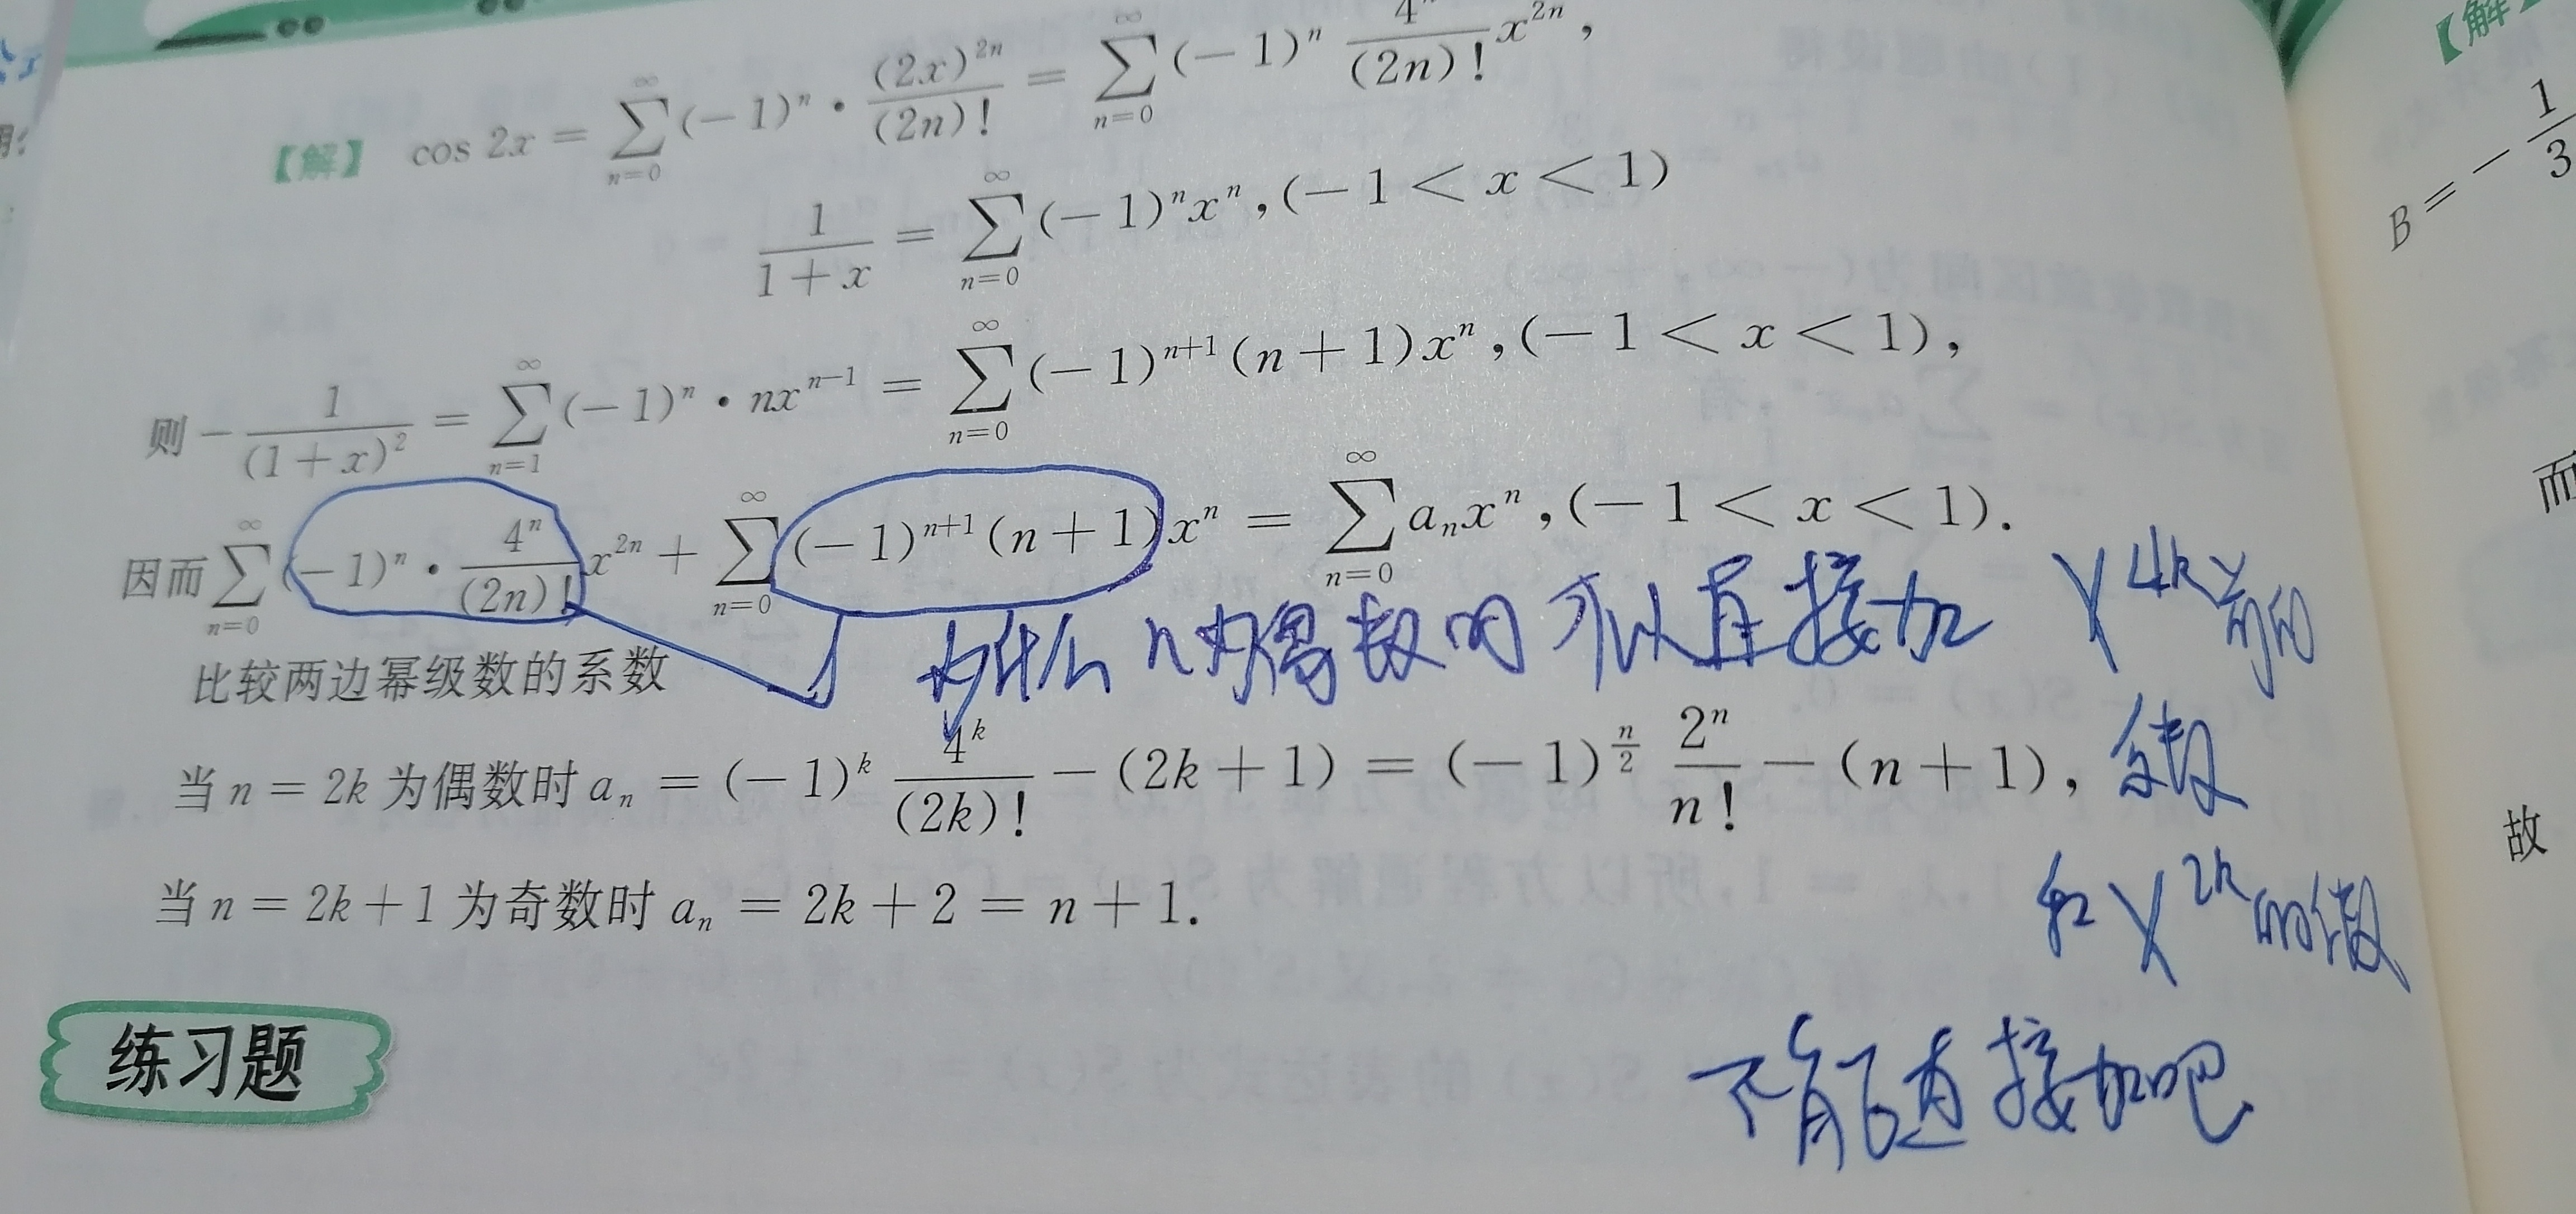 【解】 cos 2x = ∑_{n=0}^{∞} (-1)^n · (2x)^{2n}/(2n)! = ∑_{n=0}^{∞} (-1)^n 4^n/(2n)! x^{2n},
1/(1+x) = ∑_{n=0}^{∞} (-1)^n x^n, (-1 < x < 1)
则 -1/(1+x)^2 = ∑_{n=1}^{∞} (-1)^n · nx^{n-1} = ∑_{n=0}^{∞} (-1)^{n+1} (n+1)x^n, (-1 < x < 1),
因而 ∑_{n=0}^{∞} (-1)^n · 4^n/(2n)! x^{2n} + ∑_{n=0}^{∞} (-1)^{n+1} (n+1) x^n = ∑_{n=0}^{∞} a_n x^n, (-1 < x < 1).
比较两边幂级数的系数
为什么n为偶数时可以直接加 x^{4k}前的
系数
和 x^{2k}的系数
不能直接加吧
当 n = 2k 为偶数时 a_n = (-1)^k 4^k/(2k)! - (2k+1) = (-1)^{n/2} 2^n/n! - (n+1),
当 n = 2k+1 为奇数时 a_n = 2k+2 = n+1.
练习题
【解】
B = -1/3
而
故